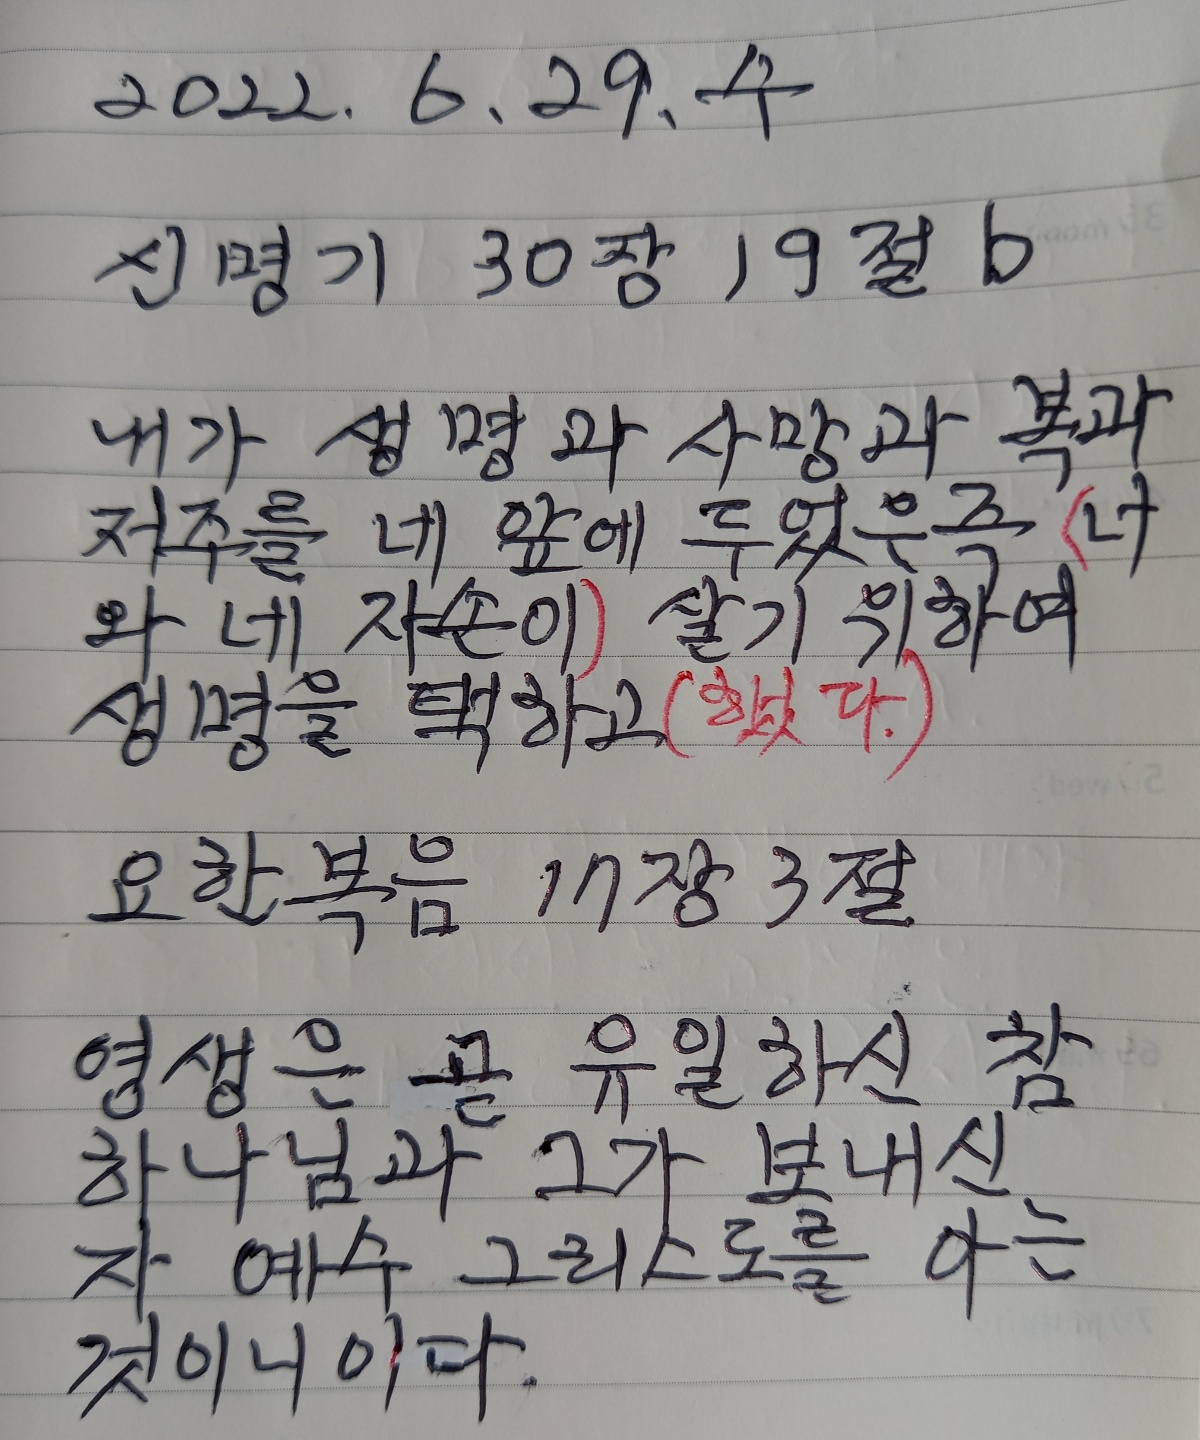 2022. 6. 29. 수
신명기 30장 19절 b
내가 생명과 사망과 복과
저주를 네 앞에 두었은즉 (너
와 네 자손이) 살기 위하여
생명을 택하고 (했다.)
요한복음 17장 3절
영생은 곧 유일하신 참
하나님과 그가 보내신
자 예수 그리스도를 아는
것이니이다.